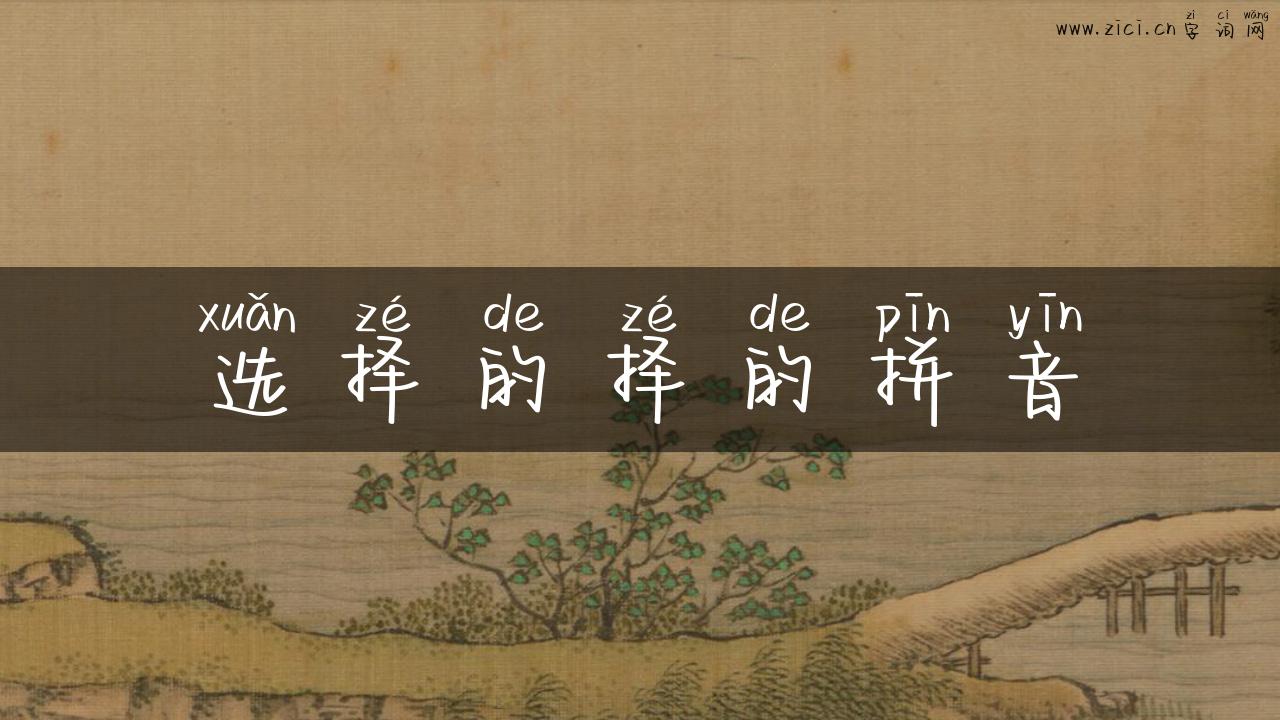 zì cí wǎng
www.zici.cn 字词网
xuǎn zé de zé de pīn yīn
选择的择的拼音